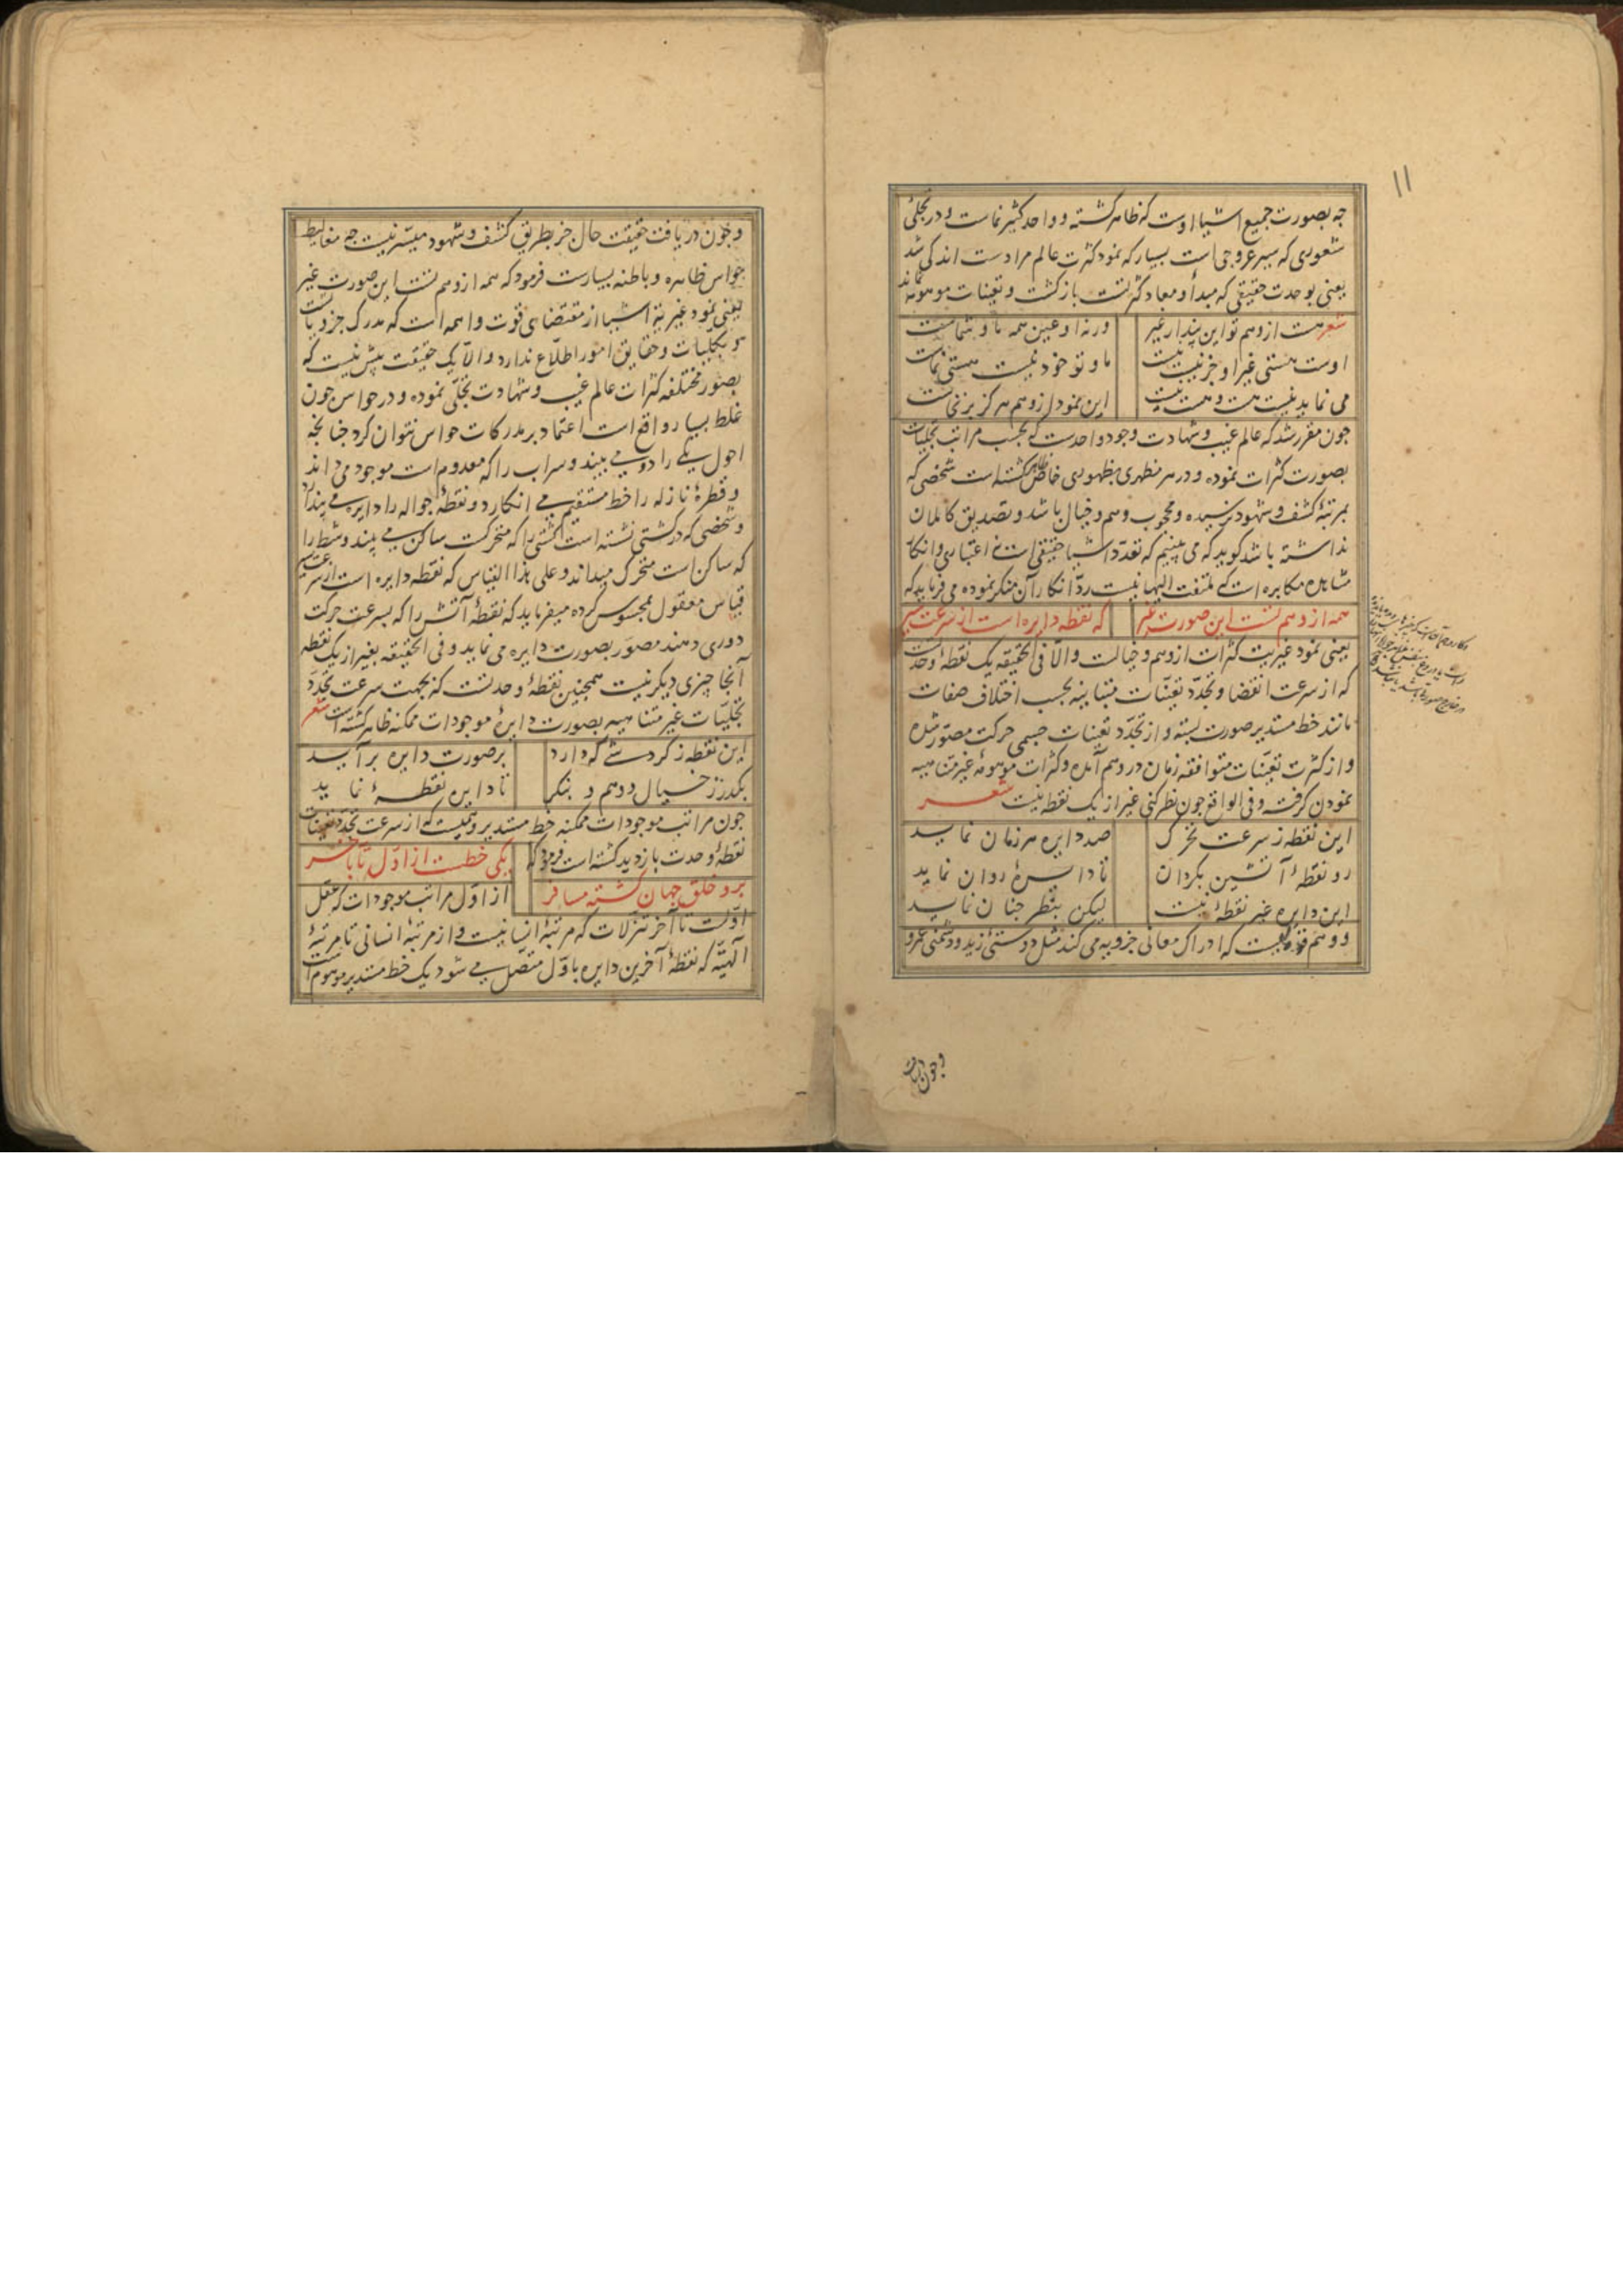 ۱۱
جه بصورت جمیع اشیا اوست که ظاهر کشته و واحد کثیر نماست و در تجلی
شعوری که سیر عروجی است بسیار که نمود کثرت عالم مرادست اندکی شد
یعنی بوحدت حقیقی که مبدأ و معاد کثرتست بازکشت و تعینات موهومه نماند
شعر هست از وهم تو این پندار غیر ورنه او عین همه ما و شماست
اوست هستی غیر او جز نیست نیست ما و تو خود نیست هستی نماست
می نماید نیست هست و هست نیست این نمود از وهم هرکز برنخاست
جون مقرر شد که عالم غیب و شهادت وجود واحدست که بحسب مراتب تجلیات
بصورت کثرات نموده و در هر مظهری بظهوری خاص ظاهر کشته است شخصی که
بمرتبهٔ کشف و شهود نرسیده و محجوب وهم و خیال باشد و تصدیق کاملان
نداشته باشد کوید که می بینیم که تعدد اشیا حقیقی است نه اعتباری و انکار
مشاهده مکابره است که ملتفت الیها نیست رد انکار آن منکر نموده می فرماید که
همه از وهم تست این صورت غیر که نقطه دایره است از سرعت سیر
یعنی نمود غیریت کثرات از وهم و خیالت والا فی الحقیقه یک نقطهٔ وحدتست
که از سرعت انقضا و تجدد تعینات متباینه بحسب اختلاف صفات
مانند خط مستدیر صورت بسته و از تجدد تعینات جسمی حرکت مصور شده
و از کثرت تعینات متوافقه زمان در وهم آمده و کثرات موهومهٔ غیر متناهیه
نمودن کرفته و فی الواقع جون نظر کنی غیر از یک نقطه نیست شعر
این نقطه ز سرعت تحرک صد دایره هر زمان نماید
رو نقطهٔ آتشین بکردان تا دایرهٔ روان نماید
این دایره غیر نقطهٔ نیست لیکن بنظر جنان نماید
و وهم قوتیست که ادراک معانی جزویه می کند مثل دوستی زید و دشمنی عمرو
وجون دریافت
وجون دریافت حقیقت حال جز بطریق کشف و شهود میسر نیست جه مغالیط
حواس ظاهره و باطنه بسیارست فرمود که همه از وهم تست این صورت غیر
یعنی نمود غیریة اشیا از مقتضای قوت واهمه است که مدرک جزویات
و بکلیات و حقایق امور اطلاع ندارد والا یک حقیقت بیش نیست که
بصور مختلفه کثرات عالم غیب و شهادت تجلی نموده و در حواس جون
غلط بسیار واقع است اعتماد بر مدرکات حواس نتوان کرد جنانجه
احول یکی را دو می بیند و سراب را که معدوم است موجود می داند
و قطرهٔ نازله را خط مستقیم می انکارد و نقطهٔ جواله را دایره می پندارد
و شخصی که در کشتی نشسته است کشتی را که متحرکست ساکن می بیند و شط را
که ساکن است متحرک میداند و علی هذا القیاس که نقطه دایره است از سرعت سیر
قیاس معقول بمحسوس کرده میفرماید که نقطهٔ آتش را که بسرعت حرکت
دوری دهند مصور بصورت دایره می نماید و فی الحقیقه بغیر از یک نقطه
آنجا جیزی دیکر نیست همجنین نقطهٔ وحدتست که بجهت سرعت تجدد
تجلیات غیر متناهیه بصورت دایرهٔ موجودات ممکنه ظاهر کشته است شعر
این نقطه ز کردشی که دارد بر صورت دایره برآید
بکذر ز خیال و وهم و بنکر تا دایره نقطهٔ نماید
جون مراتب موجودات ممکنه خط مستدیر وهمیست که از سرعت تجدد تعینات
نقطهٔ وحدت بازدید کشته است فرمود که یکی خطست از اول تا بآخر
برو خلق جهان کشته مسافر از اول مراتب موجودات که عقل
اولست تا آخر تنزلات که مرتبهٔ انسانیست و از مرتبهٔ انسانی تا مرتبهٔ
آلهیه که نقطهٔ آخرین دایره باول متصل می شود یک خط مستدیر موهوم است